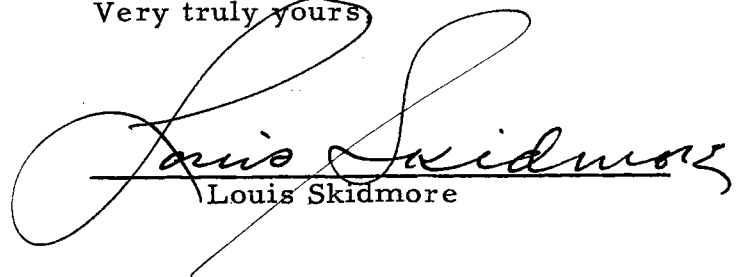 Very truly yours,
Louis Skidmore
Louis Skidmore